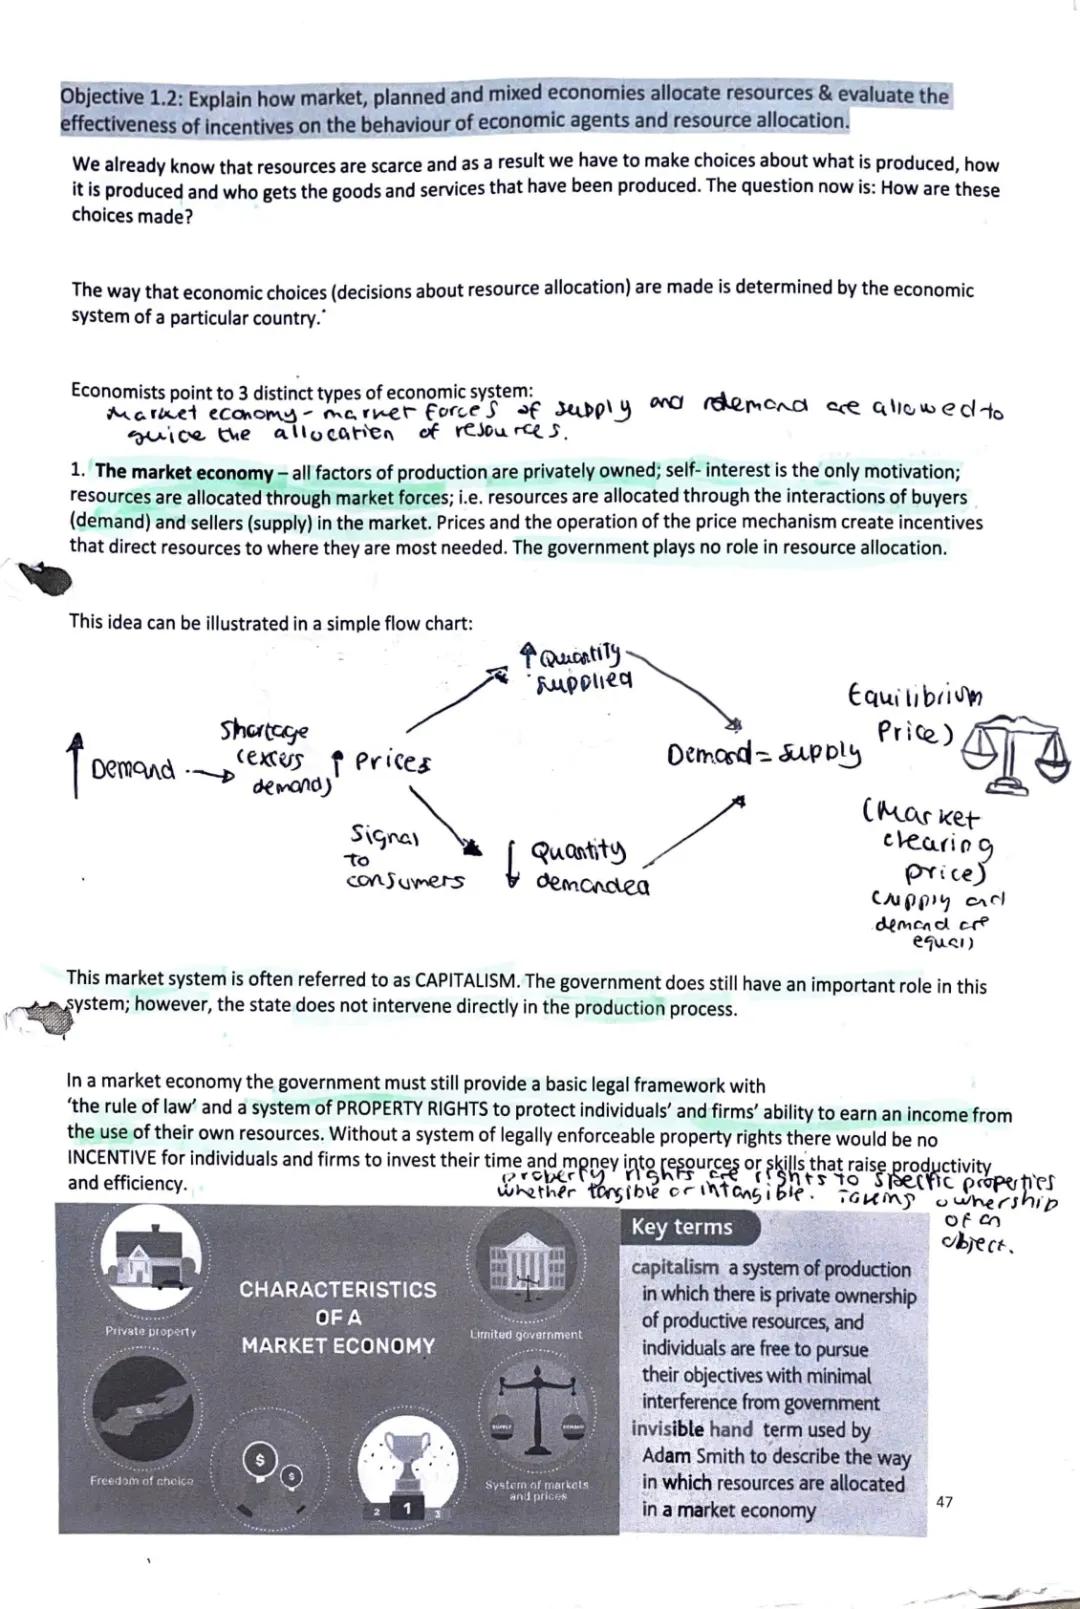 Objective 1.2: Explain how market, planned and mixed economies allocate resources & evaluate the
effectiveness of incentives on the behaviour of economic agents and resource allocation.
We already know that resources are scarce and as a result we have to make choices about what is produced, how
it is produced and who gets the goods and services that have been produced. The question now is: How are these
choices made?
The way that economic choices (decisions about resource allocation) are made is determined by the economic
system of a particular country.
Economists point to 3 distinct types of economic system:
Market economy - market forces of supply and demand are allowed to
guide the allocation of resources.
1. The market economy – all factors of production are privately owned; self- interest is the only motivation;
resources are allocated through market forces; i.e. resources are allocated through the interactions of buyers
(demand) and sellers (supply) in the market. Prices and the operation of the price mechanism create incentives
that direct resources to where they are most needed. The government plays no role in resource allocation.
This idea can be illustrated in a simple flow chart:
↑ Demand →
Shortage
(excess
demand)
↑ Prices
Signal
to
consumers
↑ Quantity
supplied
↓ Quantity
demanded
Demand = supply
Equilibrium
Price)
(Market
clearing
price)
(supply and
demand are
equal)
This market system is often referred to as CAPITALISM. The government does still have an important role in this
system; however, the state does not intervene directly in the production process.
In a market economy the government must still provide a basic legal framework with
'the rule of law' and a system of PROPERTY RIGHTS to protect individuals' and firms' ability to earn an income from
the use of their own resources. Without a system of legally enforceable property rights there would be no
INCENTIVE for individuals and firms to invest their time and money into resources or skills that raise productivity
and efficiency.
property rights are rights to specific properties
whether tangible or intangible. Taking ownership
of an
object.
CHARACTERISTICS
OF A
MARKET ECONOMY
Private property
Freedom of choice
$
$
2 1 3
Limited government
SUPPLY DEMAND
System of markets
and prices
Key terms
capitalism a system of production
in which there is private ownership
of productive resources, and
individuals are free to pursue
their objectives with minimal
interference from government
invisible hand term used by
Adam Smith to describe the way
in which resources are allocated
in a market economy
47